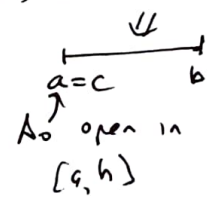 a = c b
A₀ open in
[a, b)